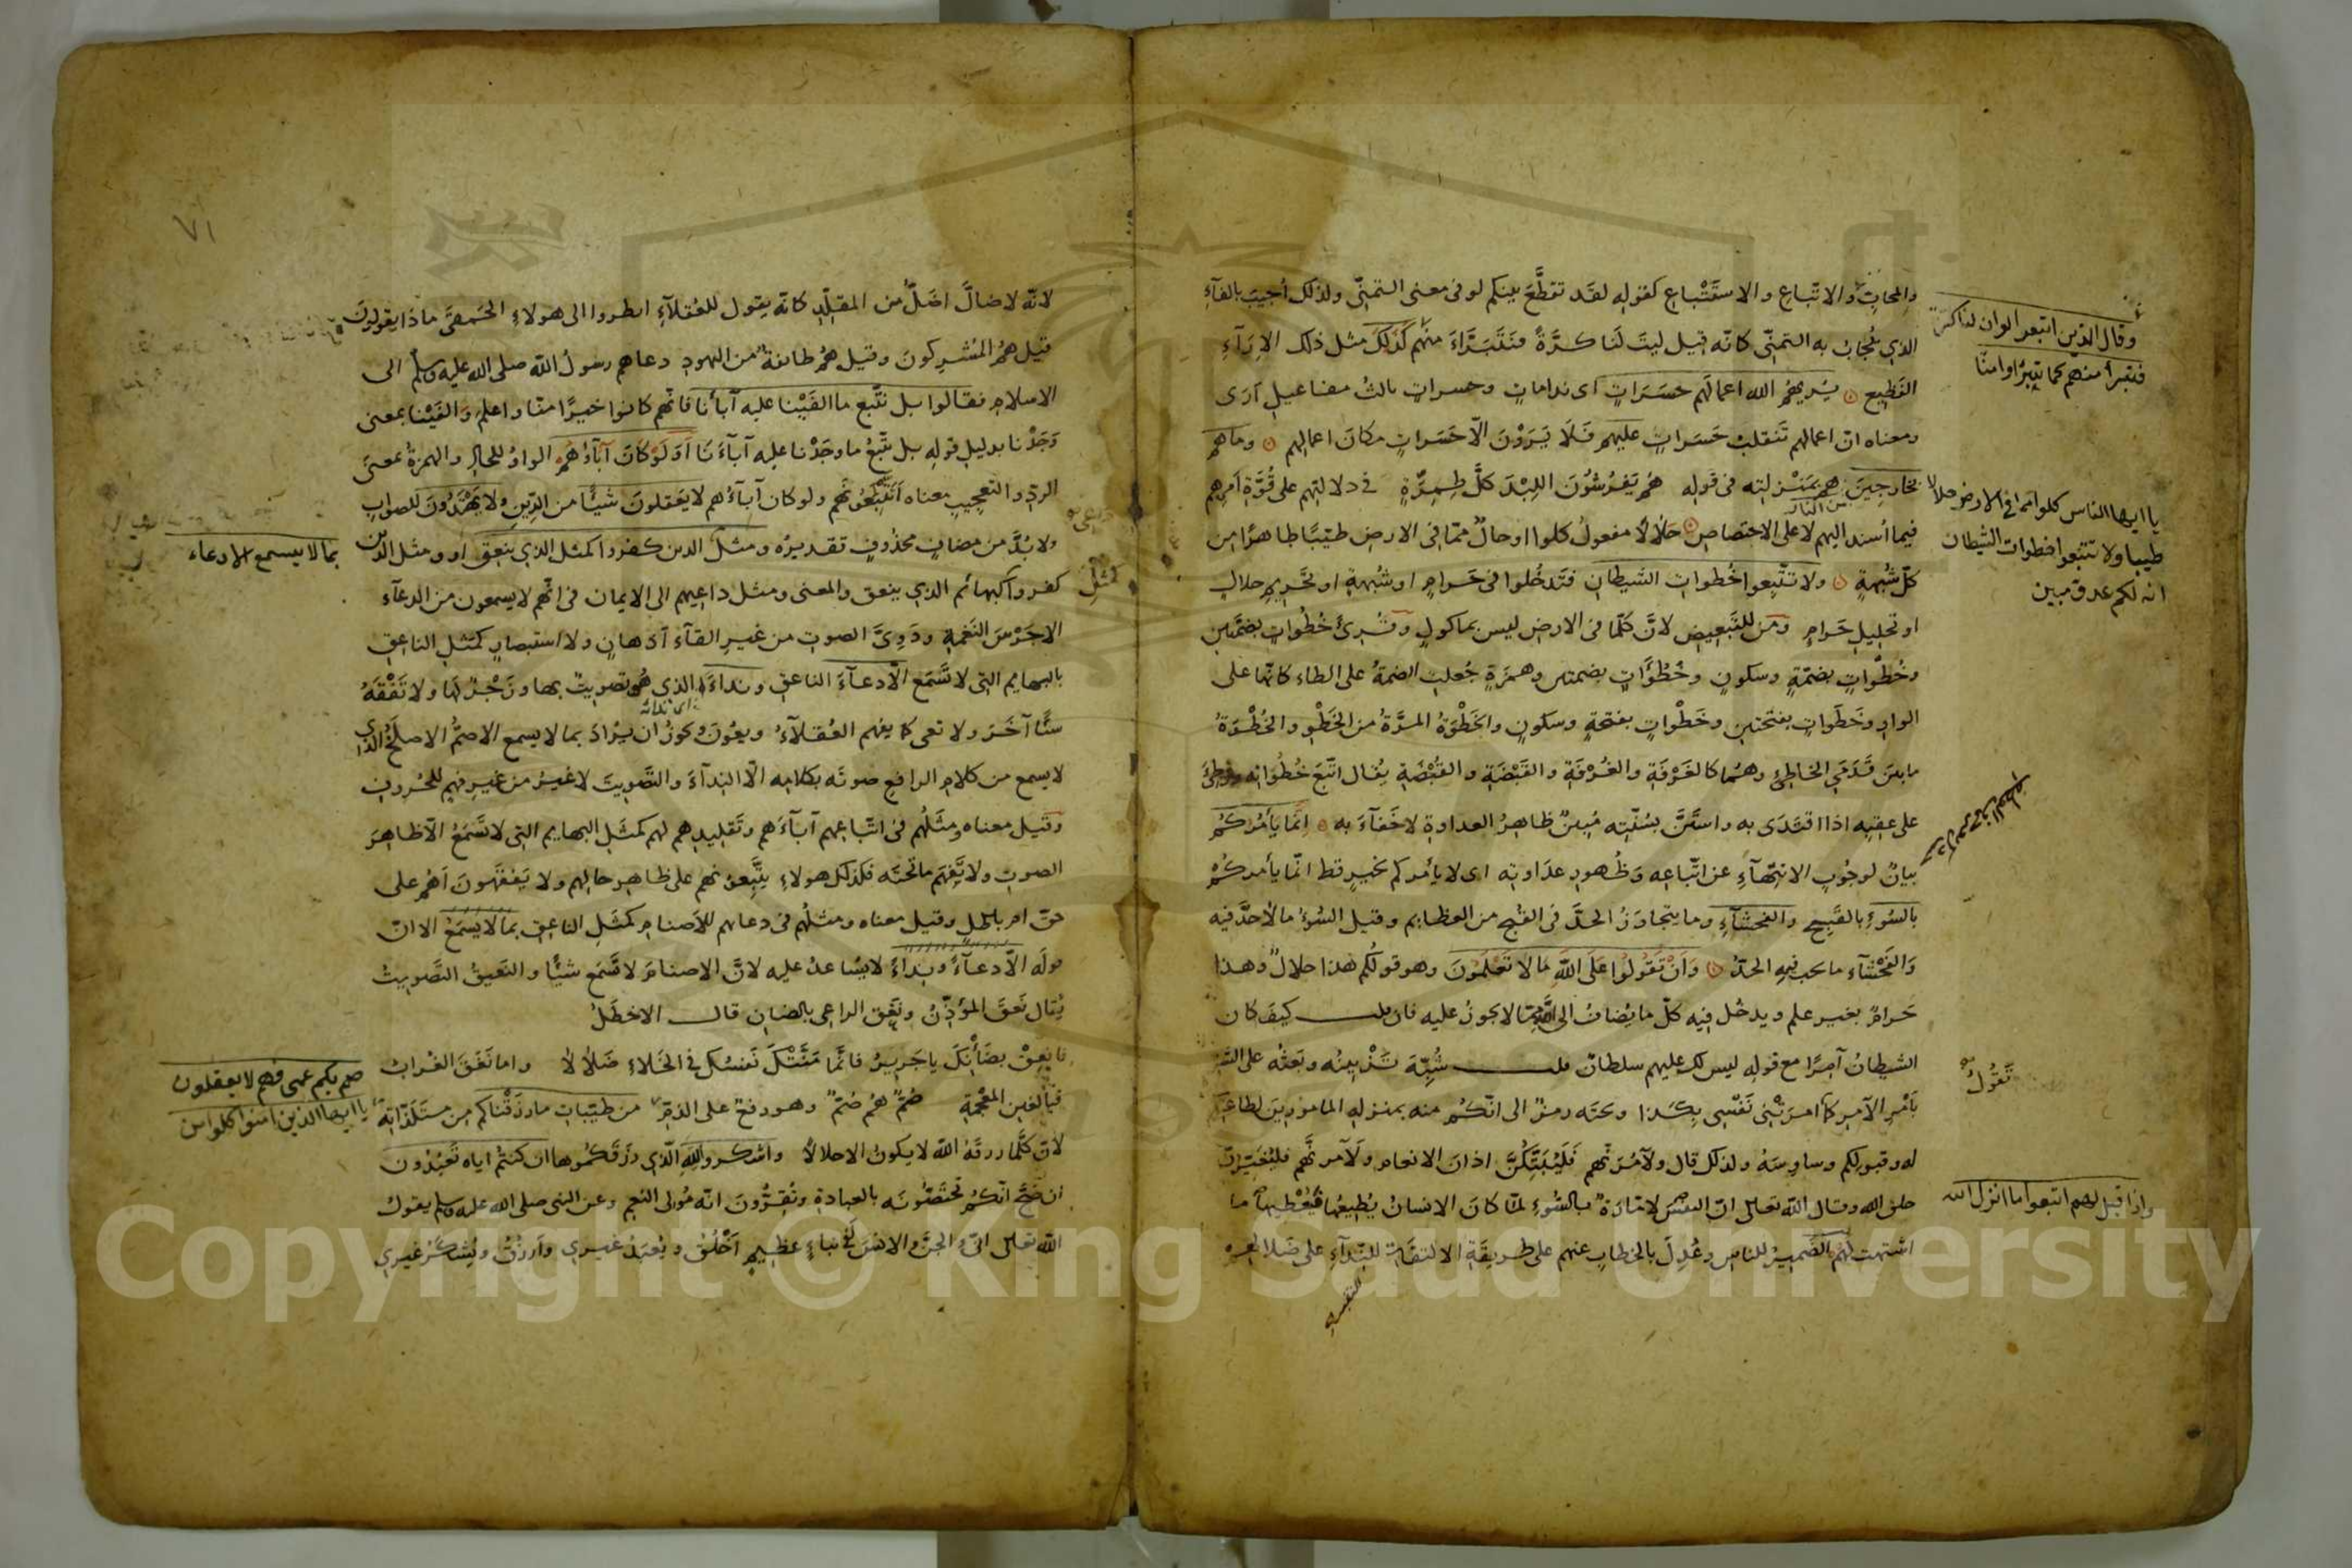 والمحابّ والاتّباع والاستتباع كقوله لقد تقطّع بينكم لو في معنى التمنّي ولذلك اُجيب بالفاء
الذي يُجاب به التمنّي كانّه قيل ليت لنا كرّةً فنتبرّاءَ منهم كذلك مثل ذلك الاِرآءِ
الفظيع يريهم الله اعمالهم حسراتٍ اى نداماتٍ وحسراتٍ ثالث مفاعيل اَرَى
ومعناه انّ اعمالهم تنقلب حسراتٍ عليهم فلا يَرَوْنَ الّا حسراتٍ مكانَ اعمالهم وما هم
بخارجين هم بمنزلته فى قوله هُمُ يَفْرُشُونَ اللِبْدَ كلَّ طِمِرَّةٍ فى دلالتهم على قُوّةِ اَمرِهم
فيما اُسند اليهم لا على الاختصاص حَلالًا مفعولُ كلوا او حالٌ ممّا فى الارض طيّبًا طاهرًا من
كلّ شُبهةٍ ولا تتّبعوا خُطواتِ الشيطان فتدخُلوا فى حرامٍ او شُبهةٍ او تحريمِ حلالٍ
او تحليلِ حَرامٍ ومن للتبعيض لانّ كلّما فى الارض ليس بماكولٍ وقُرئ خُطُواتٍ بضمّتين
وخُطْواتٍ بضمّةٍ وسكونٍ وخُطُؤاتٍ بضمتين وهمزةٍ جُعلت الضمةُ على الطاء كانّها على
الواو وخَطَواتٍ بفتحتين وخَطْواتٍ بفتحةٍ وسكونٍ والخَطْوَةُ المرّةُ من الخَطْوِ والخُطْوَةُ
ما بين قَدَمَيِ الخاطئ وهما كالغَرْفَةِ والغُرْفَةِ والقَبْضَةِ والقُبْضَةِ يُقال اتّبع خُطُواتِه ووطِئَ
على عقبِه اذا اقتدى به واستنّ بسُنّتِه مُبينٌ ظاهرُ العداوةِ لا خفآءَ به انّما يأمركم
بيانٌ لوجُوبِ الانتهآءِ عن اتّباعِه وظُهورِ عداوتِه اى لا يأمركم بخيرٍ قط انّما يأمركم
بالسُوءِ بالقبيح والفحشآءِ وما يتجاوز الحدّ فى القُبح من العظايم وقيل السُوءُ ما لا حدَّ فيه
والفَحْشآءِ ما يجب فيه الحدُّ وَاَنْ تَقُولُوا عَلَى اللهِ مَا لا تَعْلَمُونَ وهو قولُكم هذا حلالٌ وهذا
حَرامٌ بغير علمٍ ويدخُل فيه كلّ ما يُضافُ الى الله ممّا لا يجوزُ عليه فان قلت كيف كان
الشيطانُ آمرًا مع قوله ليس لك عليهم سلطانٌ قلت شُبِّهَ تَزْيِينُه وبَعثُه على الشرّ
بأمرِ الآمرِ كما امرتْنى نَفْسى بكذا وتحته رمزٌ الى انّكم منه بمنزله المامورين لطاعتكم
له وقبولكم وساوِسَهُ ولذلك قال ولآمُرَنّهم فَلَيُبَتِّكُنَّ اذان الانعام ولَآمرنّهم فليُغيّرنّ
خلق الله وقال الله تعالى انّ النفس لامّارةٌ بالسُوءِ لمّا كان الانسانُ يُطيعُها فيُعْطيها ما
اشتهت لهم الضميرُ للناسِ وعُدِلَ بالخطابِ عنهم على طريقةِ الالتفاتِ للنِدآءِ على ضلالهم
وقال الذين اتبعوا لو ان لنا كرّة
فنتبرأ منهم كما تبرّؤا منّا
يا ايها الناس كلوا مما فى الارض حلالا
طيبا ولا تتبعوا خطوات الشيطان
انه لكم عدوّ مبين
تَقُولُ
واذا قيل لهم اتبعوا ما انزل الله
٧١
لانّه لا ضالَّ اضلُّ من المقلِّدِ كانّه يقول للعُقلآءِ انظروا الى هولاءِ الحَمقى ماذا يقولونَ
قيل همُ المُشركونَ وقيل همُ طائفةٌ من اليهودِ دعاهم رسولُ الله صلى الله عليه وسلم الى
الاسلامِ فقالوا بل نتّبع ما الفَيْنا عليه آبأنا فانّهم كانوا خيرًا منّا واعلم والفَيْنا بمعنى
وَجَدْنا بدليلِ قولِه بل نتّبعُ ما وجَدْنا عليه آبآءَنا اَوَلَوْ كَانَ آبآؤُهُمْ الواوُ للحالِ والهمزةُ بمعنى
الردِّ والتعجيبِ معناه اَيَتّبِعُونَهم ولو كان آبآؤُهم لا يعقلونَ شيئًا من الدّينِ ولا يهتدُونَ للصوابِ
ولا بُدَّ من مضافٍ محذُوفٍ تقديرُه ومثل الذين كفروا كمثل الذي ينعق او ومثل الذين
كفروا كبهائم الذي ينعق والمعنى ومثل داعيهم الى الايمان فى انّهم لا يسمعون من الدعآء
الا جَرْسَ النَغمةِ ودَوِىَّ الصوتِ من غيرِ القآءِ اَذهانٍ ولا استبصارٍ كمثلِ الناعقِ
بالبهايم التى لا تَسْمَع الّا دعآءَ الناعقِ ونداءَه الذي هو تصويتٌ بها وزَجْرٌ لها ولا تَفْقَهُ
شئًا آخَرَ ولا تعى كما يفهم العُقلآءُ ويعُونَ ويجوزُ ان يُرادَ بما لا يسمع الاصمُّ الاصلَخُ الذي
لا يسمع من كلامِ الرافعِ صوتَه بكلامِه الّا النِدآءَ والتَّصويتَ لا غيرُ من غيرِ فهمٍ للحُروفِ
وقيل معناه ومثَلُهم فى اتّباعِهم آبآءَهم وتقليدِهم لهم كمثَلِ البهايم التى لا تَسْمَعُ الّا ظاهرَ
الصوتِ ولا تَفْهَم ما تحته فكذلك هولاءِ يتَّبعونهم على ظاهرِ حالِهم ولا يَفْقَهونَ اَهُم على
حقٍّ ام باطلٍ وقيل معناه ومثلُهم فى دعائهم للاَصنامِ كمثَلِ الناعِقِ بما لا يَسْمَعُ الا انّ
قولَه الّا دعآءً ونداءً لا يُساعدُ عليه لانّ الاصنامَ لا تَسْمَع شيئًا والنَعيقُ التَّصويتُ
يُقال نَعَقَ المؤذِّنُ ونَعَق الراعى بالضانِ قال الاخطَلُ
فانعِقْ بضَأْنِكَ يا جَريرُ فانّما مَنَّتْكَ نَفسُك فى الخَلاءِ ضَلالًا واما نَغَقَ الغُرابُ
فبالغينِ المُعْجَمةِ صُمٌّ هُم صُمٌّ وهو رفعٌ على الذمّ من طيّباتِ ما رزقْناكم من مستلَذّاتِه
لانّ كلَّما رزقَهُ الله لا يكونُ الا حلالًا واشكروا للهِ الّذي رزَقَكُموها ان كنتُم اياه تَعبُدُون
ان صَحَّ انّكم تَخُصّونَه بالعبادةِ وتُقِرُّونَ انّه مُولِى النِعم وعن النبى صلى الله عليه وسلم يقولُ
الله تعالى انّى والجنَّ والانسَ لفى نباءٍ عظيمٍ اَخْلُقُ ويُعبَدُ غيرى وأرزُقُ ويُشكَرُ غيري
بما لا يسمع الا دعاء
كمثل
صم بكم عمى فهم لا يعقلون
يا ايها الذين امنوا كلوا من
Copyright © King Saud University